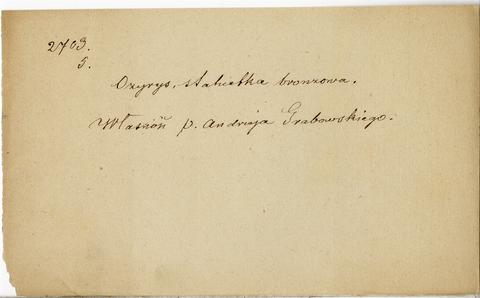 2703.
5.
Ozyrys, statuetka bronzowa.
Własność p. Andrzeja Grabowskiego.